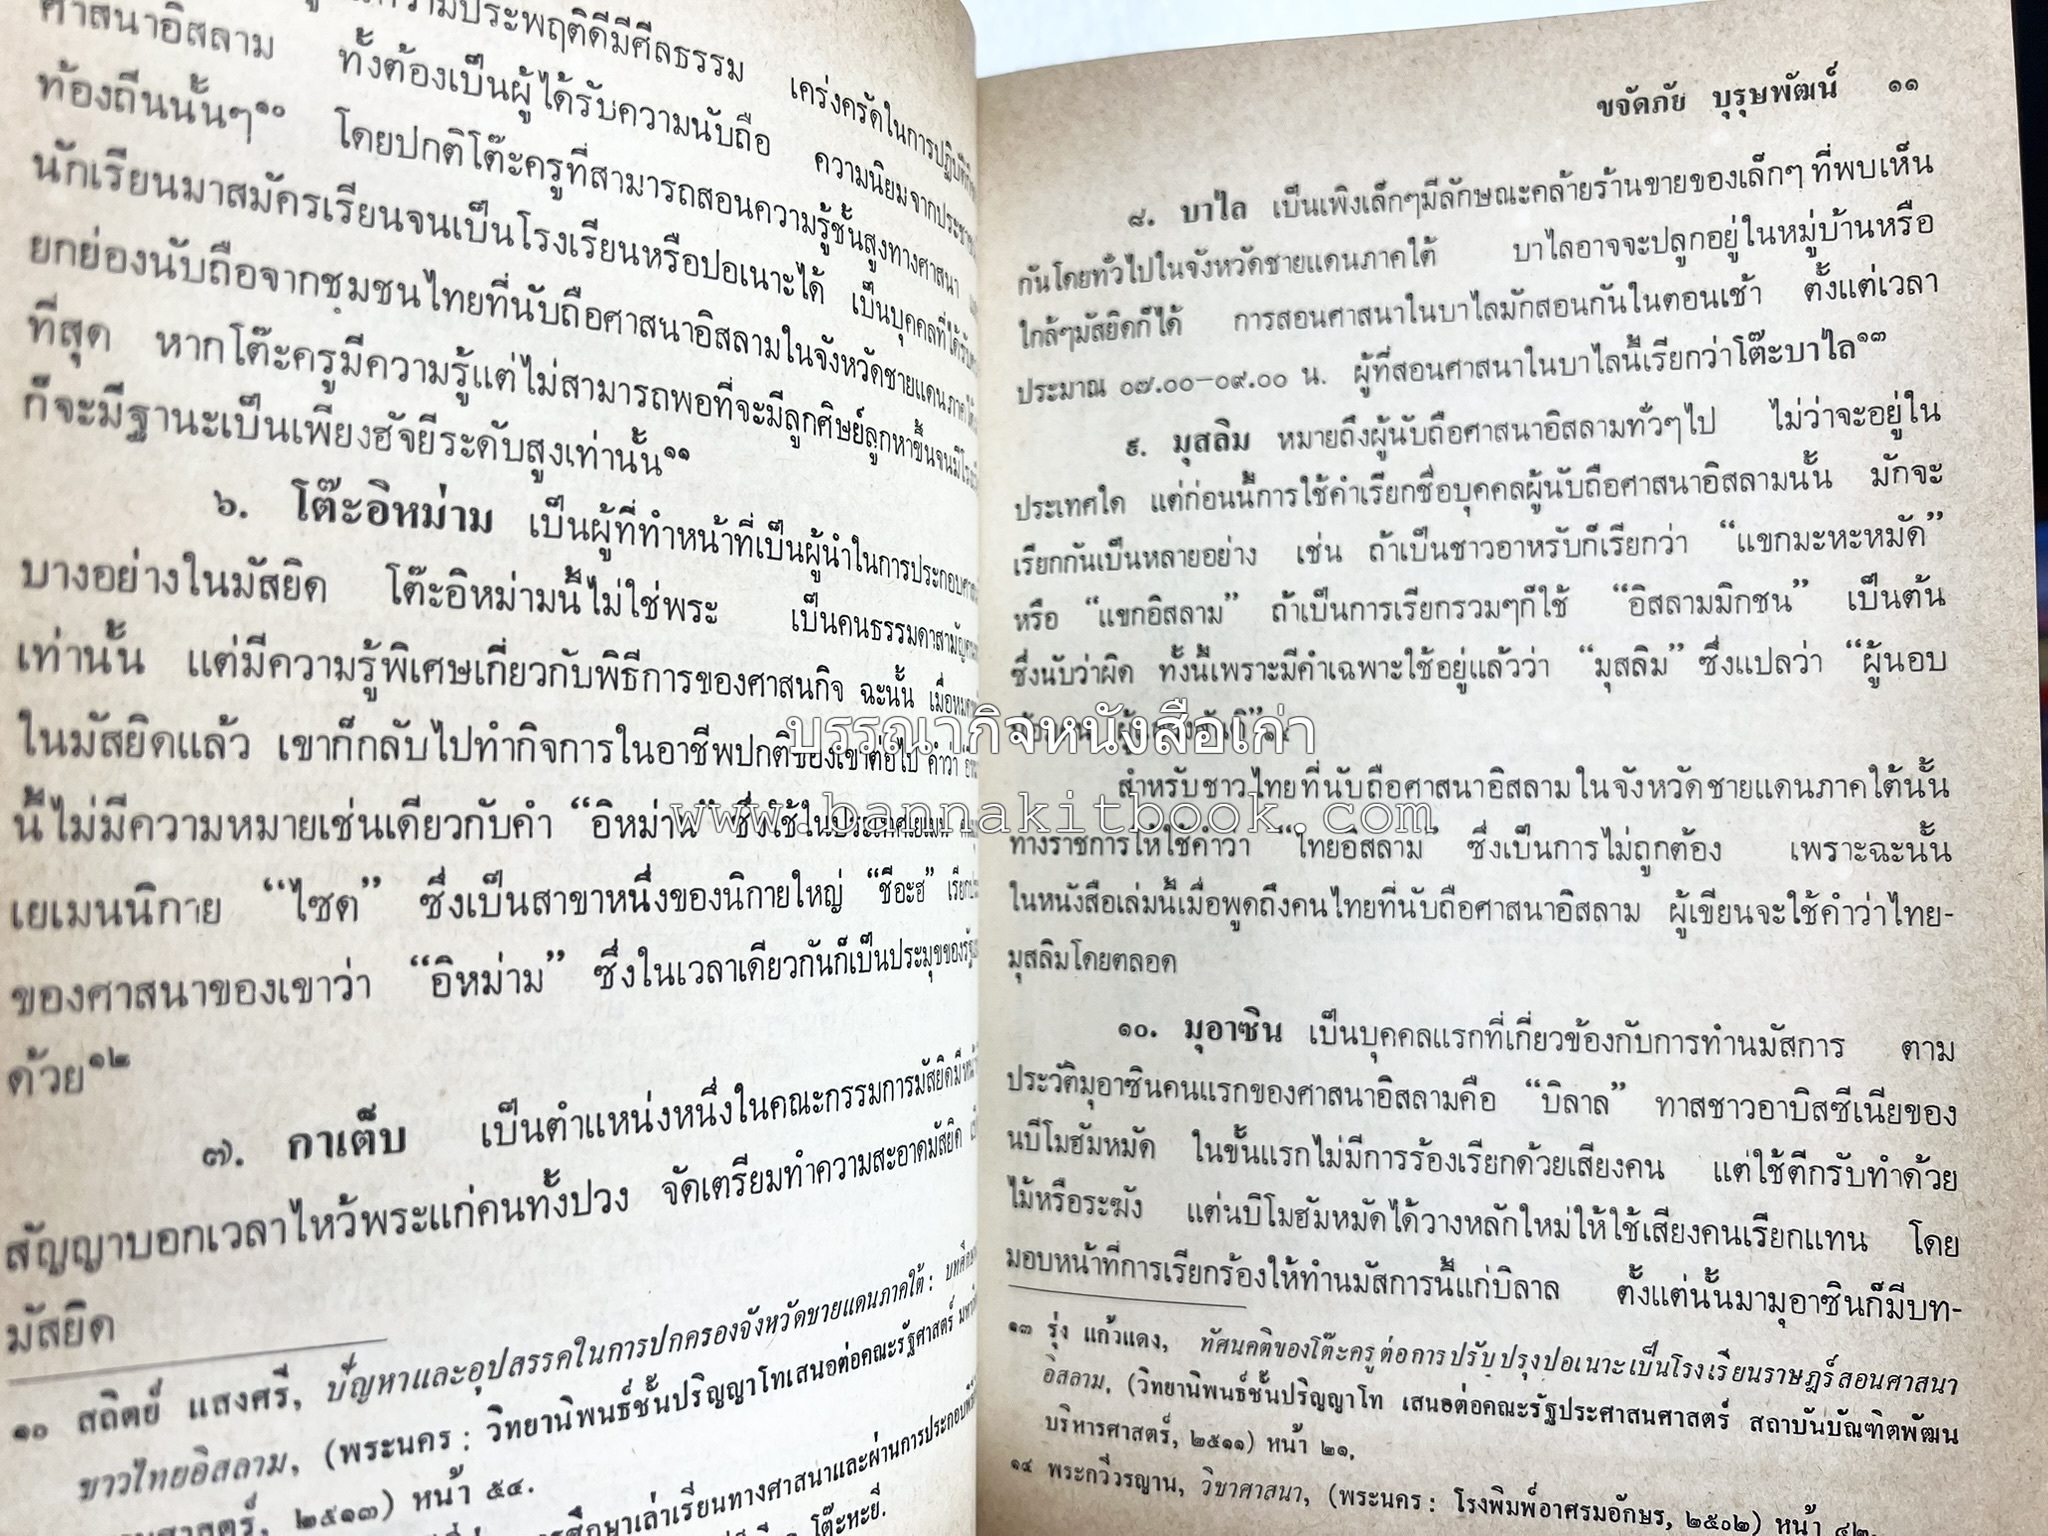 ความประพฤติดีมีศีลธรรม เคร่งครัดในการปฏิบัติ
ศาสนาอิสลาม ทั้งต้องเป็นผู้ได้รับความนับถือ ความนิยมจากประชาชน
ท้องถิ่นนั้นๆ๑๐ โดยปกติโต๊ะครูที่สามารถสอนความรู้ชั้นสูงทางศาสนา
นักเรียนมาสมัครเรียนจนเป็นโรงเรียนหรือปอเนาะได้ เป็นบุคคลที่ได้รับ
ยกย่องนับถือจากชุมชนไทยที่นับถือศาสนาอิสลามในจังหวัดชายแดนภาคใต้
ที่สุด หากโต๊ะครูมีความรู้แต่ไม่สามารถพอที่จะมีลูกศิษย์ลูกหาขึ้นจนมี
ก็จะมีฐานะเป็นเพียงฮัจยีระดับสูงเท่านั้น๑๑
๖. โต๊ะอิหม่าม เป็นผู้ที่ทำหน้าที่เป็นผู้นำในการประกอบ
บางอย่างในมัสยิด โต๊ะอิหม่ามนี้ไม่ใช่พระ เป็นคนธรรมดาสามัญ
เท่านั้น แต่มีความรู้พิเศษเกี่ยวกับพิธีการของศาสนกิจ ฉะนั้น
ในมัสยิดแล้ว เขาก็กลับไปทำกิจการในอาชีพปกติของเขาต่อไป คำว่า
นี้ไม่มีความหมายเช่นเดียวกับคำ “อิหม่าน” ซึ่งใช้ในประเทศเยเมน
เยเมนนิกาย “ไซด” ซึ่งเป็นสาขาหนึ่งของนิกายใหญ่ “ชีอะฮ”
ของศาสนาของเขาว่า “อิหม่าม” ซึ่งในเวลาเดียวกันก็เป็นประมุขของ
ด้วย๑๒
๗. กาเต็บ เป็นตำแหน่งหนึ่งในคณะกรรมการมัสยิด
สัญญาบอกเวลาไหว้พระแก่คนทั้งปวง จัดเตรียมทำความสะอาดมัสยิด
มัสยิด
๑๐ สถิตย์ แสงศรี, ปัญหาและอุปสรรคในการปกครองจังหวัดชายแดนภาคใต้ :
ชาวไทยอิสลาม, (พระนคร : วิทยานิพนธ์ชั้นปริญญาโทเสนอต่อคณะรัฐศาสตร์
๒๕๑๓) หน้า ๕๔.
ศึกษาเล่าเรียนทางศาสนาและผ่านการประกอบ
โต๊ะหะยี.
ขจัดภัย บุรุษพัฒน์ ๑๑
๘. บาไล เป็นเพิงเล็กๆมีลักษณะคล้ายร้านขายของเล็กๆ ที่พบเห็น
กันโดยทั่วไปในจังหวัดชายแดนภาคใต้ บาไลอาจจะปลูกอยู่ในหมู่บ้านหรือ
ใกล้ๆมัสยิดก็ได้ การสอนศาสนาในบาไลมักสอนกันในตอนเช้า ตั้งแต่เวลา
ประมาณ ๐๗.๐๐–๐๙.๐๐ น. ผู้ที่สอนศาสนาในบาไลนี้เรียกว่าโต๊ะบาไล๑๓
๙. มุสลิม หมายถึงผู้นับถือศาสนาอิสลามทั่วๆไป ไม่ว่าจะอยู่ใน
ประเทศใด แต่ก่อนนี้การใช้คำเรียกชื่อบุคคลผู้นับถือศาสนาอิสลามนั้น มักจะ
เรียกกันเป็นหลายอย่าง เช่น ถ้าเป็นชาวอาหรับก็เรียกว่า “แขกมะหะหมัด”
หรือ “แขกอิสลาม” ถ้าเป็นการเรียกรวมๆก็ใช้ “อิสลามมิกชน” เป็นต้น
ซึ่งนับว่าผิด ทั้งนี้เพราะมีคำเฉพาะใช้อยู่แล้วว่า “มุสลิม” ซึ่งแปลว่า “ผู้นอบ
บรรณากิจหนังสือเก่า
สำหรับชาวไทยที่นับถือศาสนาอิสลามในจังหวัดชายแดนภาคใต้นั้น
www.bannakitbook.com
ทางราชการให้ใช้คำว่า “ไทยอิสลาม” ซึ่งเป็นการไม่ถูกต้อง เพราะฉะนั้น
ในหนังสือเล่มนี้เมื่อพูดถึงคนไทยที่นับถือศาสนาอิสลาม ผู้เขียนจะใช้คำว่าไทย-
มุสลิมโดยตลอด
๑๐. มุอาซิน เป็นบุคคลแรกที่เกี่ยวข้องกับการทำนมัสการ ตาม
ประวัติมุอาซินคนแรกของศาสนาอิสลามคือ “บิลาล” ทาสชาวอาบิสซีเนียของ
นบีโมฮัมหมัด ในขั้นแรกไม่มีการร้องเรียกด้วยเสียงคน แต่ใช้ตีกรับทำด้วย
ไม้หรือระฆัง แต่นบีโมฮัมหมัดได้วางหลักใหม่ให้ใช้เสียงคนเรียกแทน โดย
มอบหน้าที่การเรียกร้องให้ทำนมัสการนี้แก่บิลาล ตั้งแต่นั้นมามุอาซินก็มีบท-
๑๓ รุ่ง แก้วแดง, ทัศนคติของโต๊ะครูต่อการปรับปรุงปอเนาะเป็นโรงเรียนราษฎร์สอนศาสนา
อิสลาม, (วิทยานิพนธ์ชั้นปริญญาโท เสนอต่อคณะรัฐประศาสนศาสตร์ สถาบันบัณฑิตพัฒน
บริหารศาสตร์, ๒๕๑๑) หน้า ๒๑.
๑๔ พระกวีวรญาน, วิชาศาสนา, (พระนคร : โรงพิมพ์อาศรมอักษร, ๒๕๐๒) หน้า ๔๒.